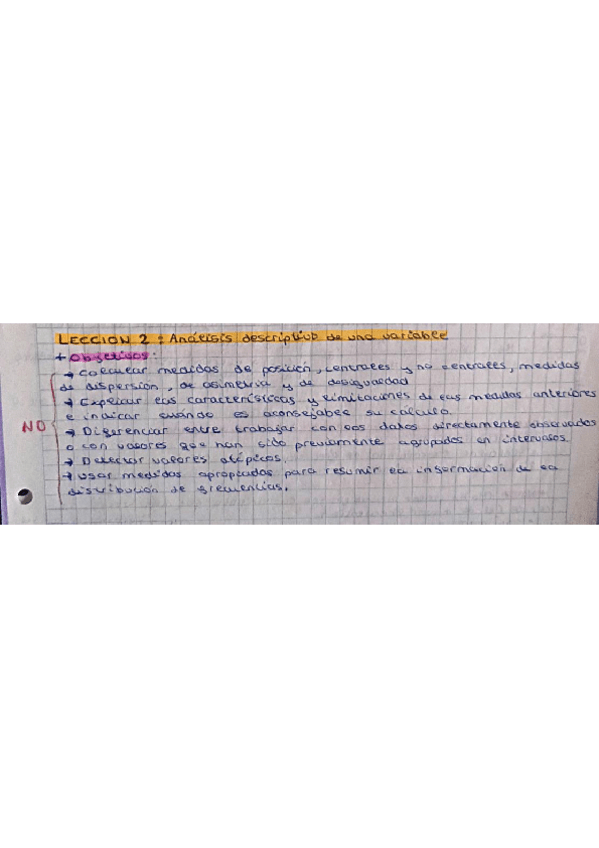 LECCION 2 : Análisis descriptivo de una variable
+ Objetivos:
→ Calcular medidas de posición, centrales y no centrales, medidas
de dispersión, de asimetria y de desigualdad
→ Explicar las características y limitaciones de las medidas anteriores
e indicar cuándo es aconsejable su cálculo.
NO
→ Diferenciar entre trabajar con los datos directamente observados
o con valores que han sido previamente agrupados en intervalos.
→ Detectar valores atípicos.
→ Usar medidas apropiadas para resumir la información de la
distribución de frecuencias.